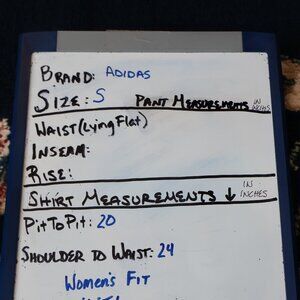 BRAND: ADIDAS
SIZE: S PANT MEASUREMENTS IN INCHES
WAIST (Lying Flat)
INSEAM:
RISE:
SHIRT MEASUREMENTS ↓ IN INCHES
PIT TO PIT: 20
SHOULDER TO WAIST: 24
Women's FIT